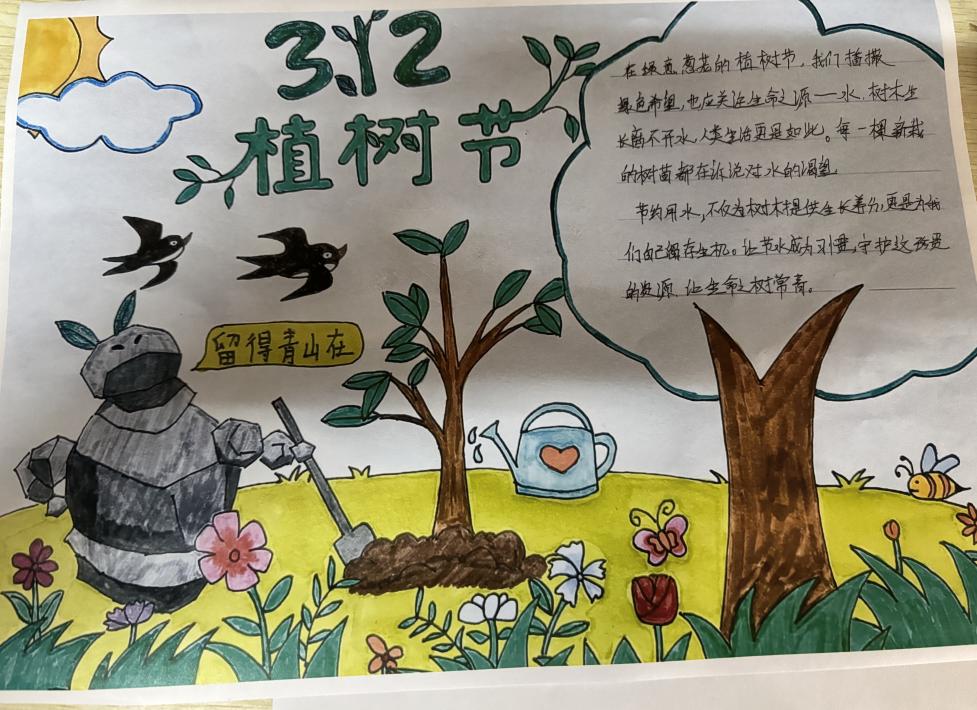 3.12
植树节
留得青山在
在绿意葱茏的植树节，我们播撒
绿色希望，也应关注生命之源——水。树木生
长离不开水，人类生活更是如此。每一棵新栽
的树苗都在诉说对水的渴望
节约用水，不仅为树木提供生长养分，更是为我
们自己留存生机。让节水成为习惯，守护这珍贵
的资源，让生命之树常青。